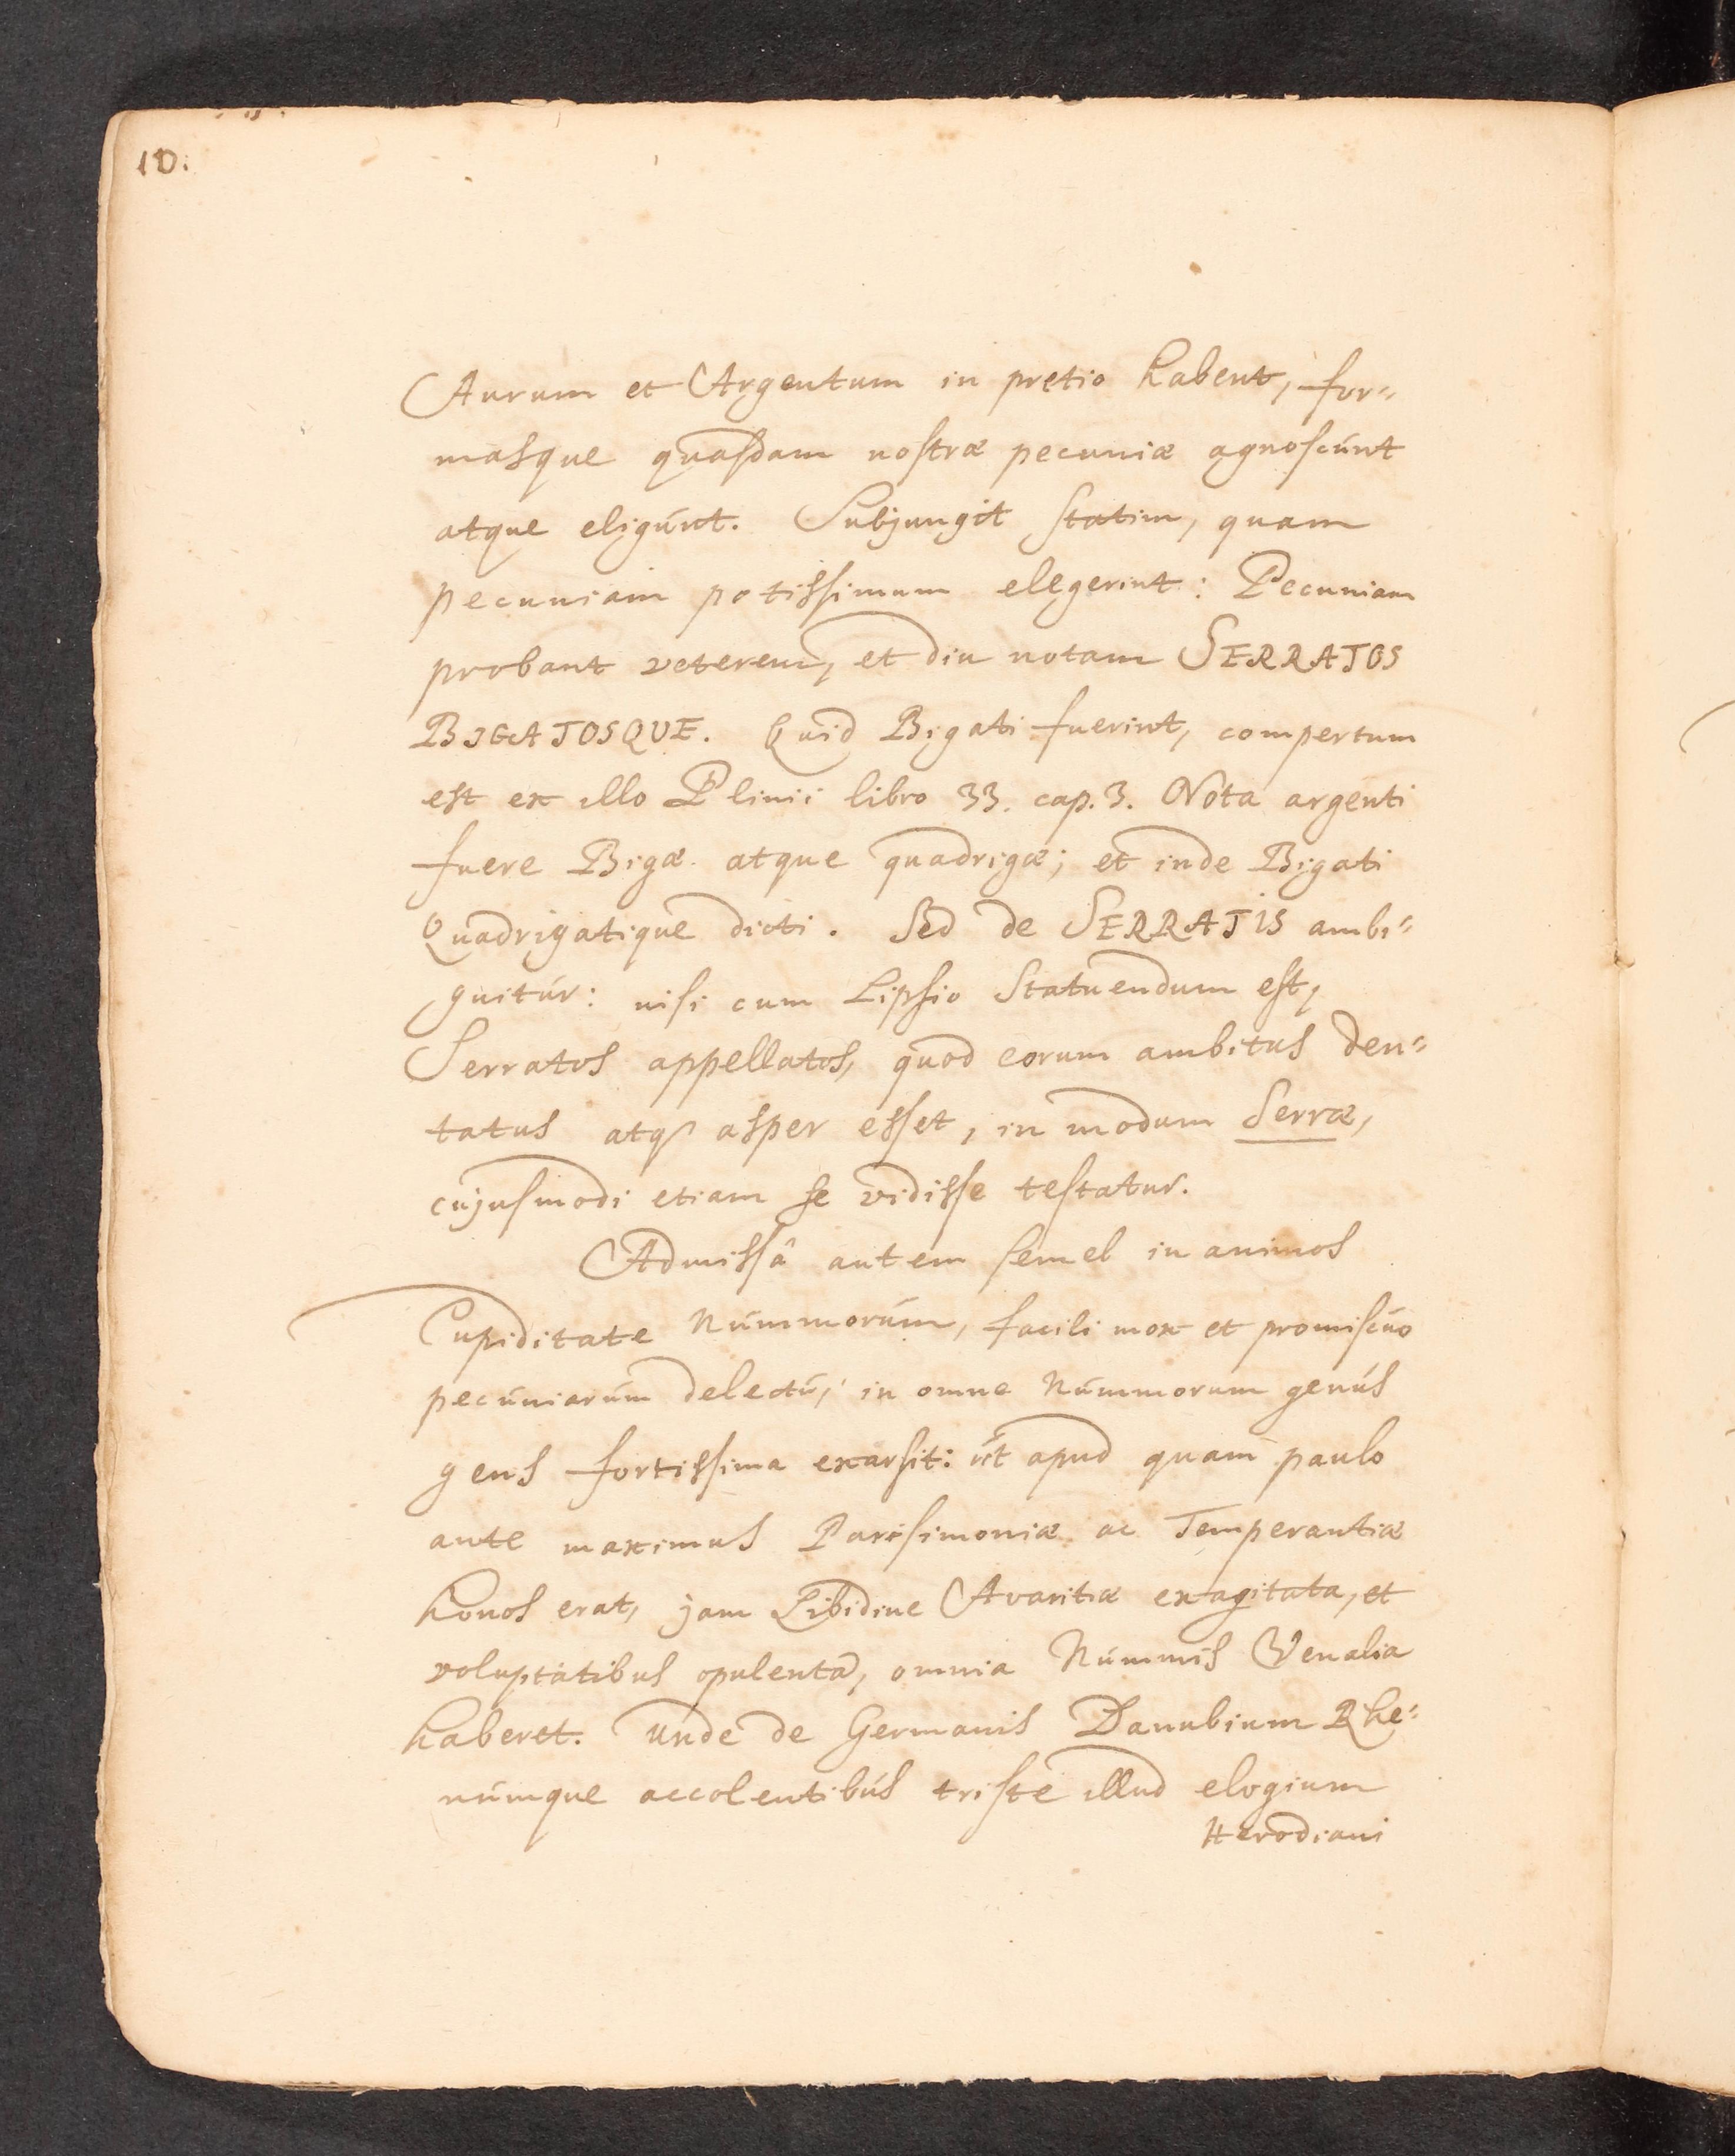 10.
Aurum et Argentum in pretio habent, for=
masque quasdam nostræ pecuniæ agnoscúnt
atque eligúnt. Subjungit statim, quam
pecuniam potissimum elegerint: Pecuniam
probant veterem, et diu notam SERRATOS
BIGATOSQUE. Quid Bigati fuerint, compertum
est ex illo Plinii libro 33. cap. 3. Nota argenti
fuere Bigæ atque quadrigæ; et inde Bigati
Quadrigatique dicti. Sed de SERRATIS ambi=
guitúr: nisi cum Lipsio Statuendum est,
Serratos appellatos, quod eorum ambitus den=
tatus atq; asper esset, in modum Serræ,
cujusmodi etiam se vidisse testatur.
Admissâ autem semel in animos
Cupiditate Númmorúm, facili mox et promiscúo
pecúniarúm delectú, in omne Númmorum genús
gens fortissima exarsit: út apud quam paulo
ante maximus Parsimoniæ ac Temperantiæ
honos erat, jam Libidine Avaritiæ exagitata, et
voluptatibus opulenta, omnia Númmis Venalia
haberet. Unde de Germanis Danubium Rhe=
númque accolentibús triste illud elogium
Herodiani